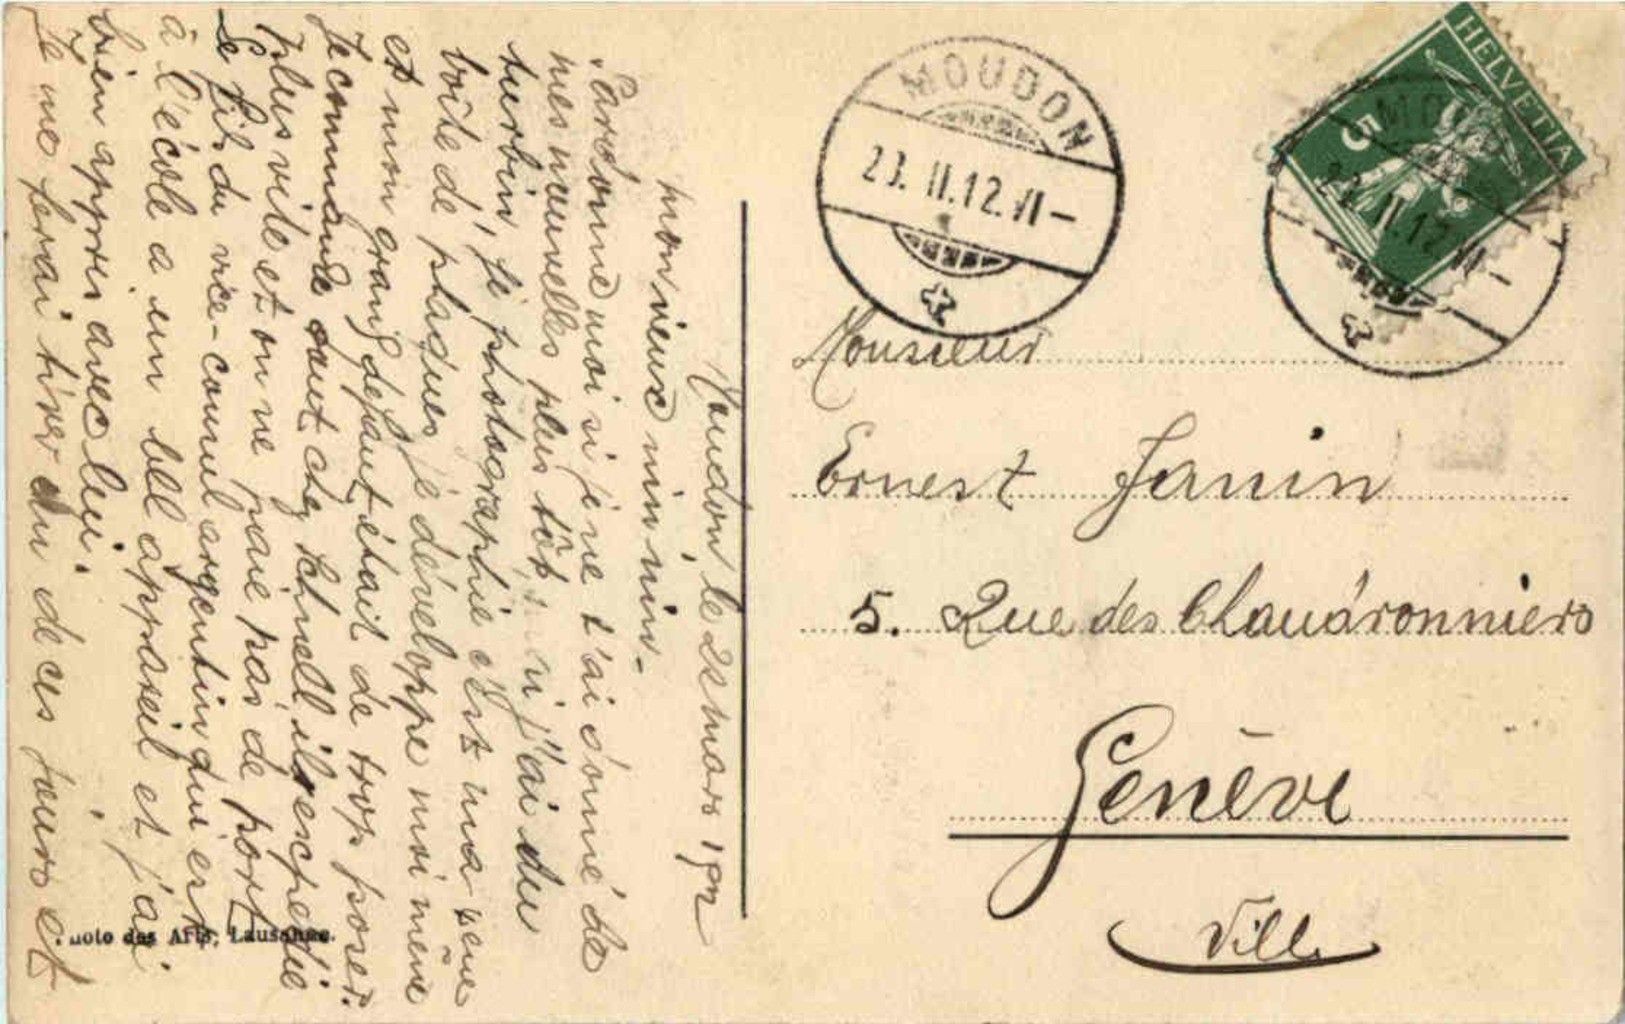 Moudon le 22 mars 1912
mon vieux nin nin -
Pardonne moi si je ne t'ai donné de
mes nouvelles plus tôt j'ai du
turbin, je photographie c'est ma 2eme
boîte de plaques je développe moi même
et mon grand défaut était de trop poser.
Je commande tout chez Schnell il expedie
plus vite et on ne paie pas de port
Le fils du vice-consul argentin qui est
à l'école a un bell appareil et j'ai
bien appris avec lui.
Je me ferai tirer un de ces jours et
Photo des Arts, Lausanne.
MOUDON
23. II. 12. VI-
HELVETIA
5
MOUDON
23. II. 12. VI-
Monsieur
Ernest Janin
5. Rue des Chaudronniers
Genève
Ville